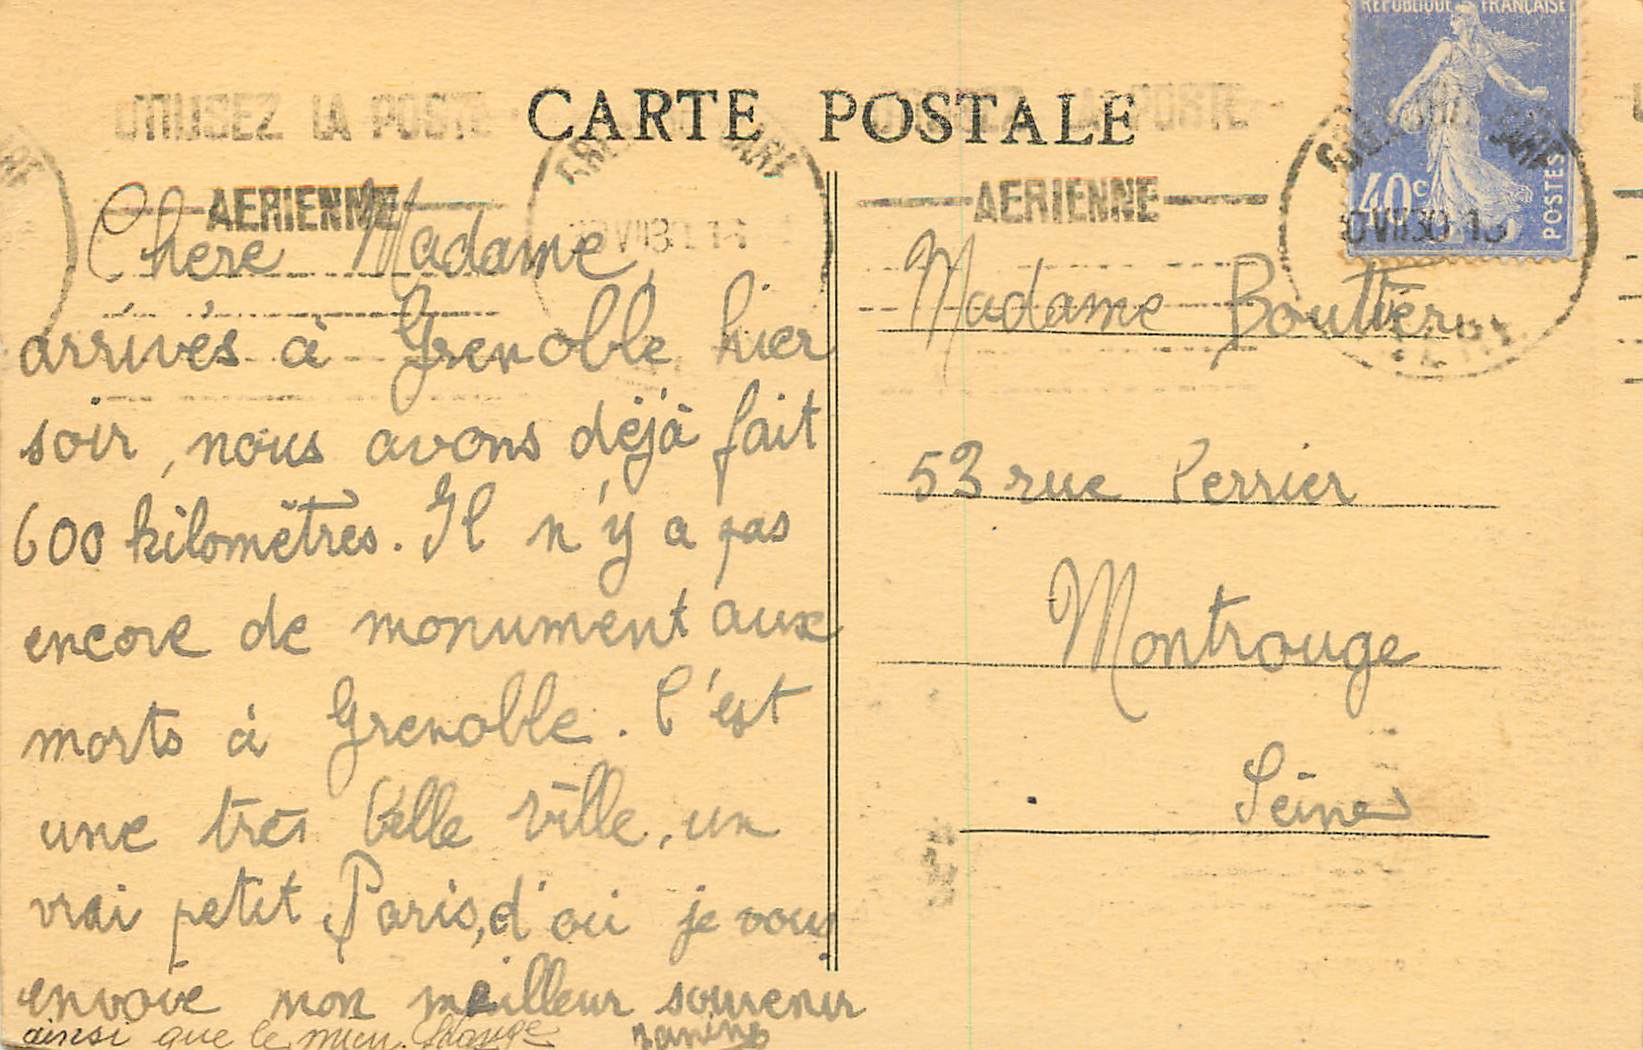 CARTE POSTALE
UTILISEZ LA POSTE
AERIENNE
UTILISEZ LA POSTE
AERIENNE
REPUBLIQUE FRANÇAISE
40c
POSTES
VII30
Chere Madame,
arrivés à Grenoble hier
soir, nous avons déjà fait
600 kilomètres. Il n'y a pas
encore de monument aux
morts à Grenoble. C'est
une très belle ville, un
vrai petit Paris, d'où je vous
envoie mon meilleur souvenir
ainsi que le mien.
Janine
Madame Bouttier
53 rue Perrier
Montrouge
Seine